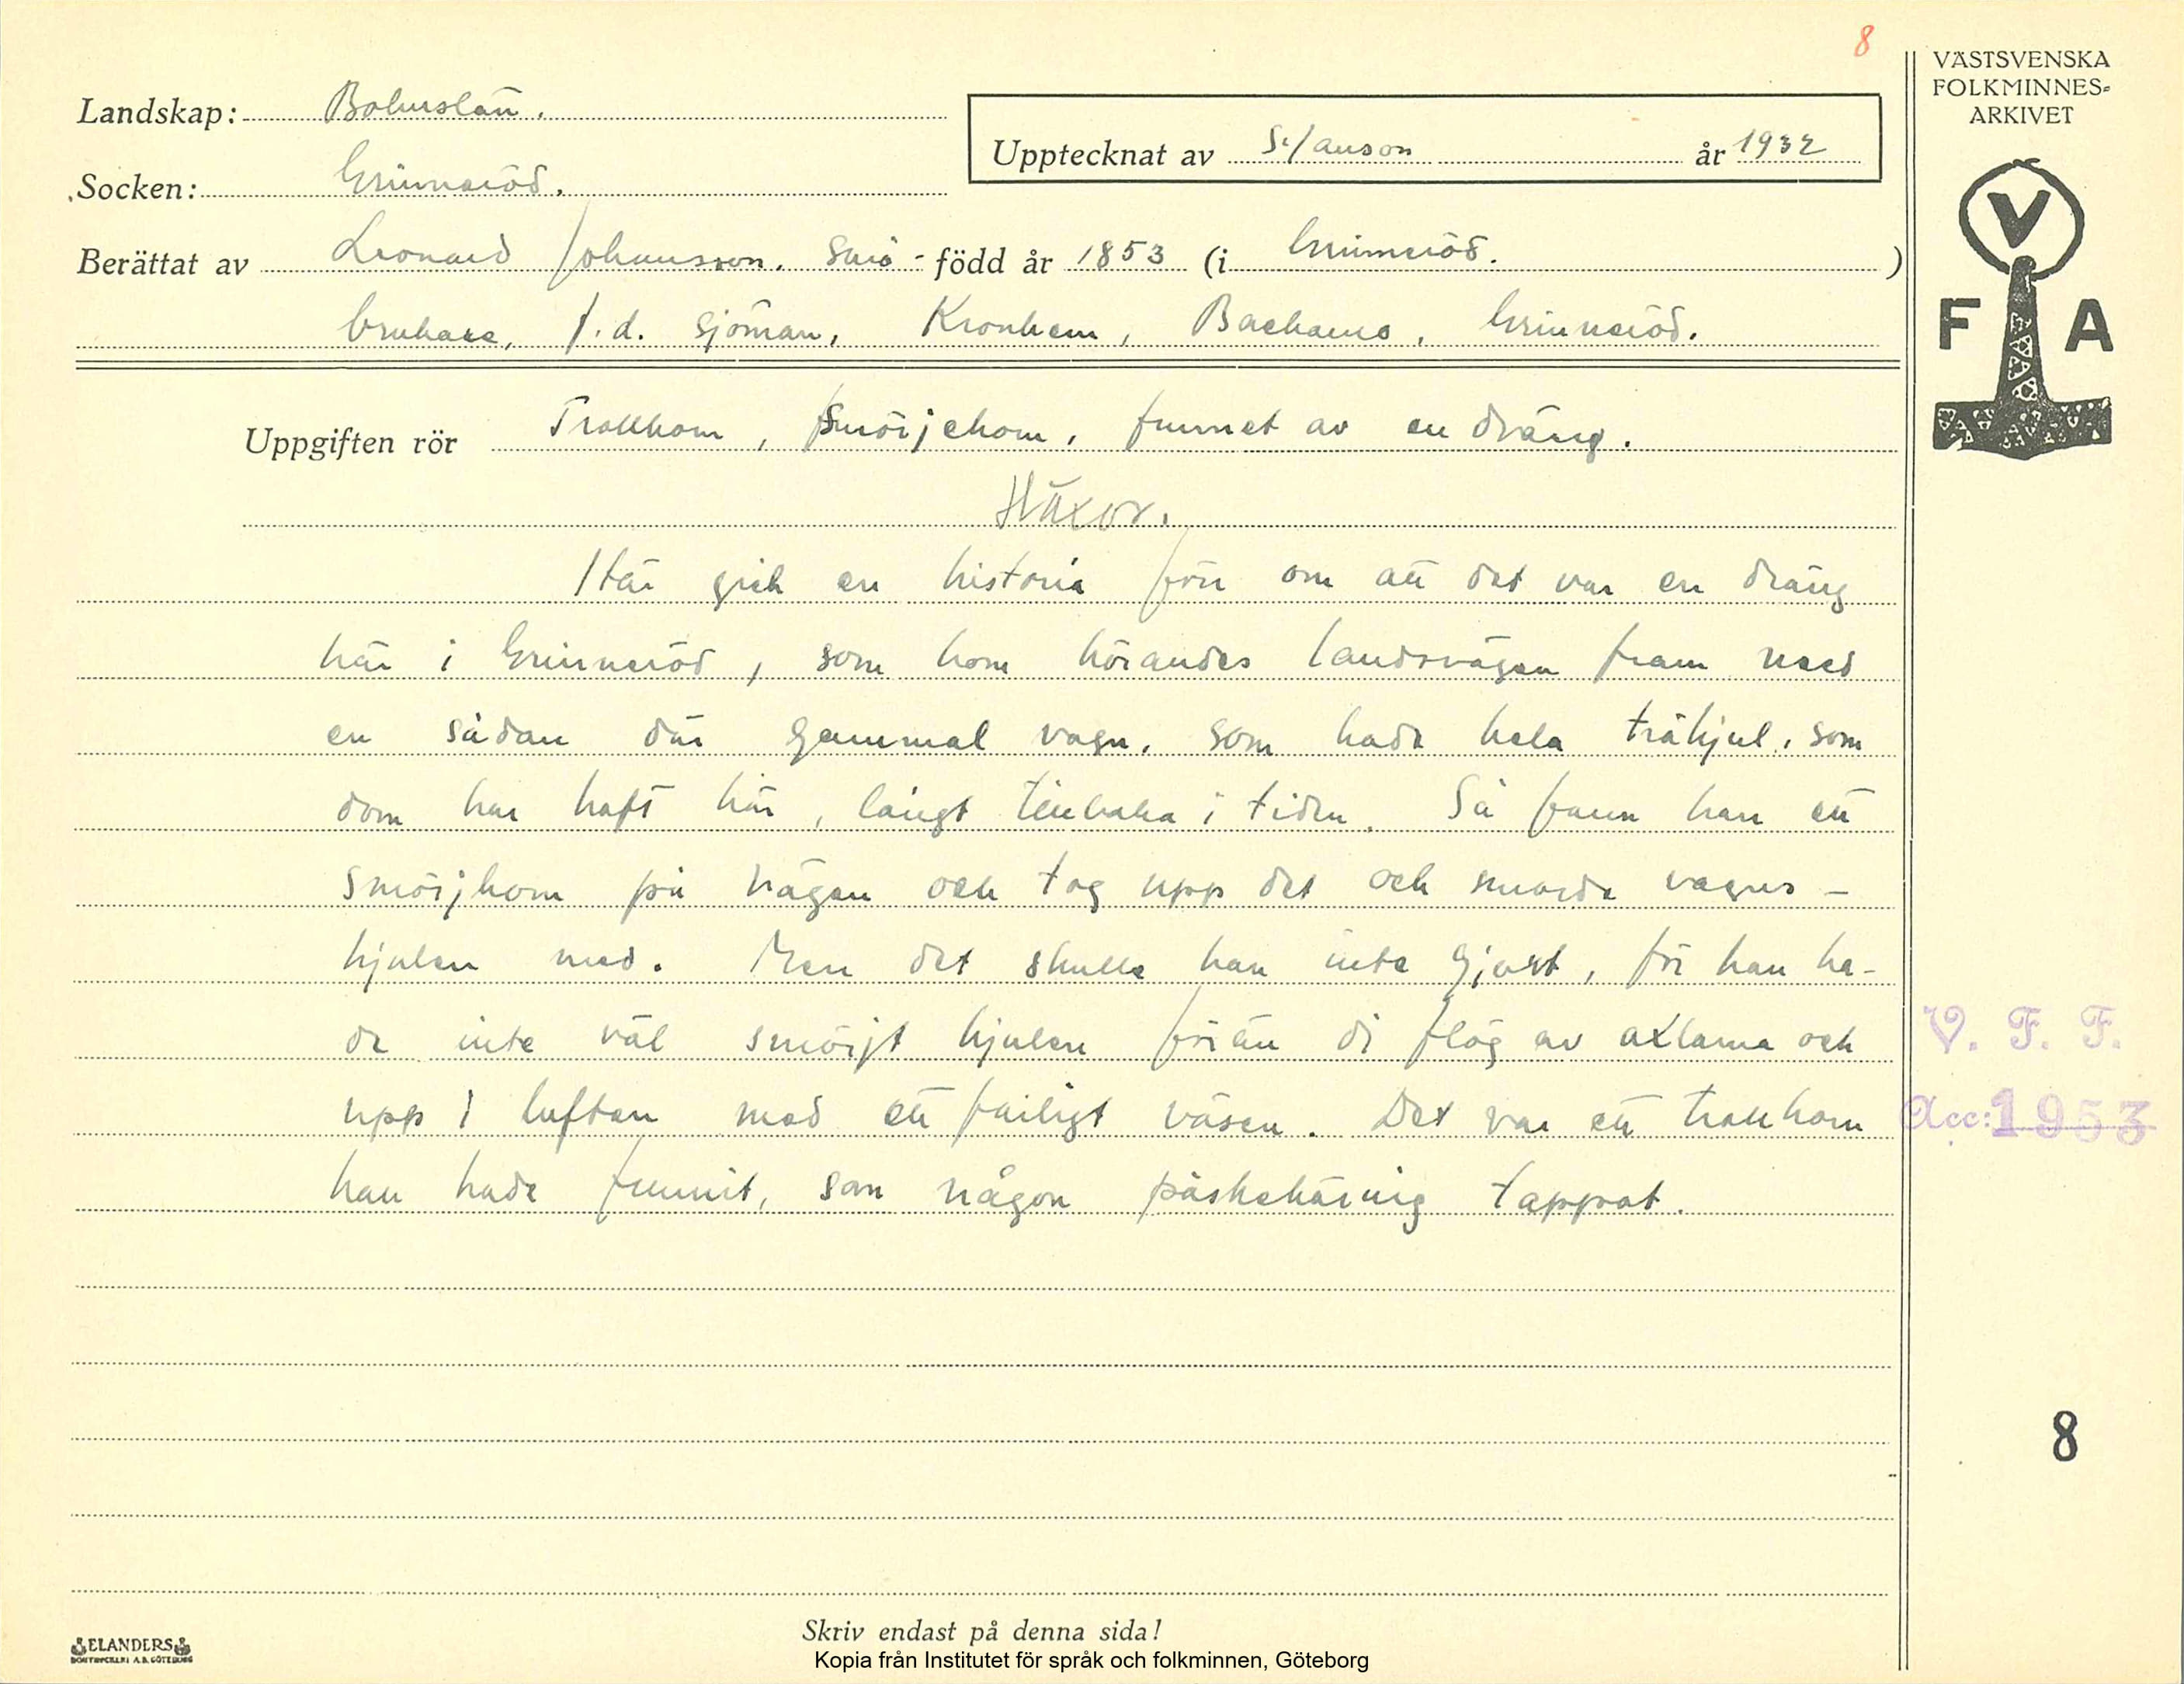 8
VÄSTSVENSKA
FOLKMINNES=
ARKIVET
Landskap: Bohuslän.
Upptecknat av S. Janson år 1932
Socken: Grinneröd.
Berättat av Leonard Johansson. Små- född år 1853 (i Grinneröd. )
brukare, f.d. sjöman, Kronhem, Backamo, Grinneröd.
V
F A
Uppgiften rör Trollhorn, Smörjehorn, funnet av en dräng.
Häxor.
Här gick en historia förr om att det var en dräng
här i Grinneröd, som kom körandes landsvägen fram med
en sådan där gammal vagn, som hade hela trähjul, som
dom har haft här, långt tillbaka i tiden. Så fann han ett
smörjhorn på vägen och tog upp det och smorde vagns-
hjulen med. Men det skulle han inte gjort, för han ha-
de inte väl smörjt hjulen förän di flög av axlarna och
upp i luften med ett farligt väsen. Det var ett trollhorn
han hade funnit, som någon påskekäring tappat.
V. F. F.
Acc: 1953
8
Skriv endast på denna sida!
ELANDERS
BOKTRYCKERI A.B. GÖTEBORG
Kopia från Institutet för språk och folkminnen, Göteborg